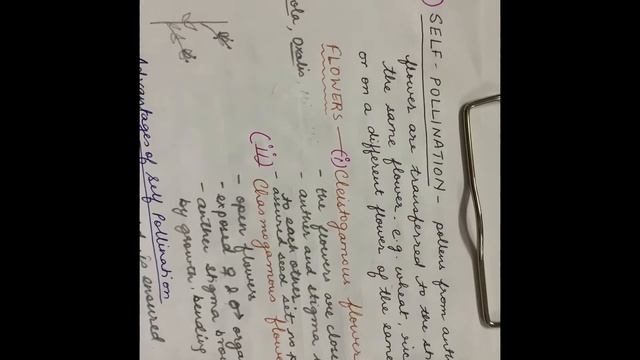 ) SELF - POLLINATION - pollens from anth
flower are transferred to the
the same flower. e.g. wheat,
or on a different flower of the same
Oxalis,
FLOWERS - (i) Cleistogamous flower
- the flowers are close
- anther and stigma
to each other
- assured seed set
(ii) Chasmogamous flow
- open flowers
- exposed ♀ & ♂ orga
- anther stigma bro
by growth, bending
Advantages of Self Pollination
is ensured